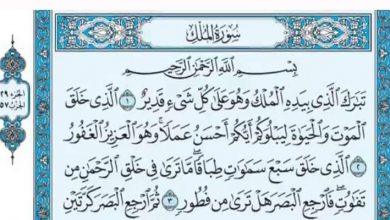 سُورَةُ المُلْكِ
بِسْمِ اللَّهِ الرَّحْمَٰنِ الرَّحِيمِ
تَبَٰرَكَ الَّذِي بِيَدِهِ الْمُلْكُ وَهُوَ عَلَىٰ كُلِّ شَيْءٍ قَدِيرٌ ۝١ الَّذِي خَلَقَ
الْمَوْتَ وَالْحَيَوٰةَ لِيَبْلُوَكُمْ أَيُّكُمْ أَحْسَنُ عَمَلًا ۚ وَهُوَ الْعَزِيزُ الْغَفُورُ
۝٢ الَّذِي خَلَقَ سَبْعَ سَمَٰوَٰتٍ طِبَاقًا ۖ مَّا تَرَىٰ فِي خَلْقِ الرَّحْمَٰنِ مِن
تَفَٰوُتٍ ۖ فَارْجِعِ الْبَصَرَ هَلْ تَرَىٰ مِن فُطُورٍ ۝٣ ثُمَّ ارْجِعِ الْبَصَرَ كَرَّتَيْنِ
الجزء ٢٩
الحزب ٥٧